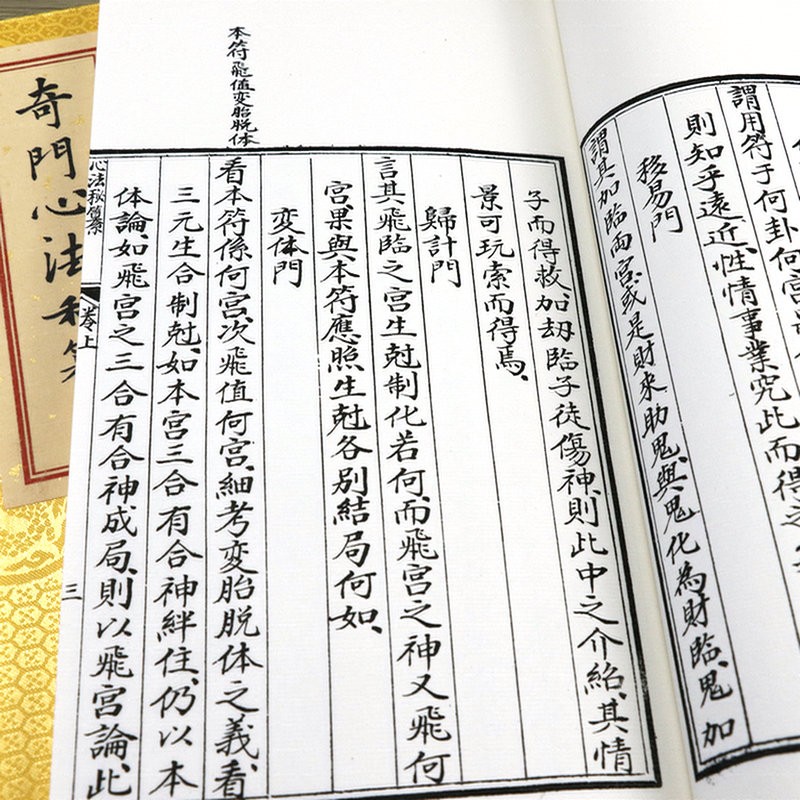 謂用符于何卦何宮
則知乎遠近、性情事業究此而得之
移易門
謂其加臨兩宮或是財來助鬼、與鬼化為財臨、鬼加
子而得救、加刼臨子徒傷神、則此中之介紹、其情
景可玩索而得焉、
歸計門
言其飛臨之宮生尅制化若何、而飛宮之神又飛何
宮、果與本符應照生尅各別結局何如、
変体門
看本符係何宮、次飛值何宮、細考変胎脱体之義、看
三元生合制尅、如本宮三合有合神絆住、仍以本
体論、如飛宮之三合有合神成局、則以飛宮論、此
本符飛值変胎脱体
心法秘
卷上
三
奇門心法秘